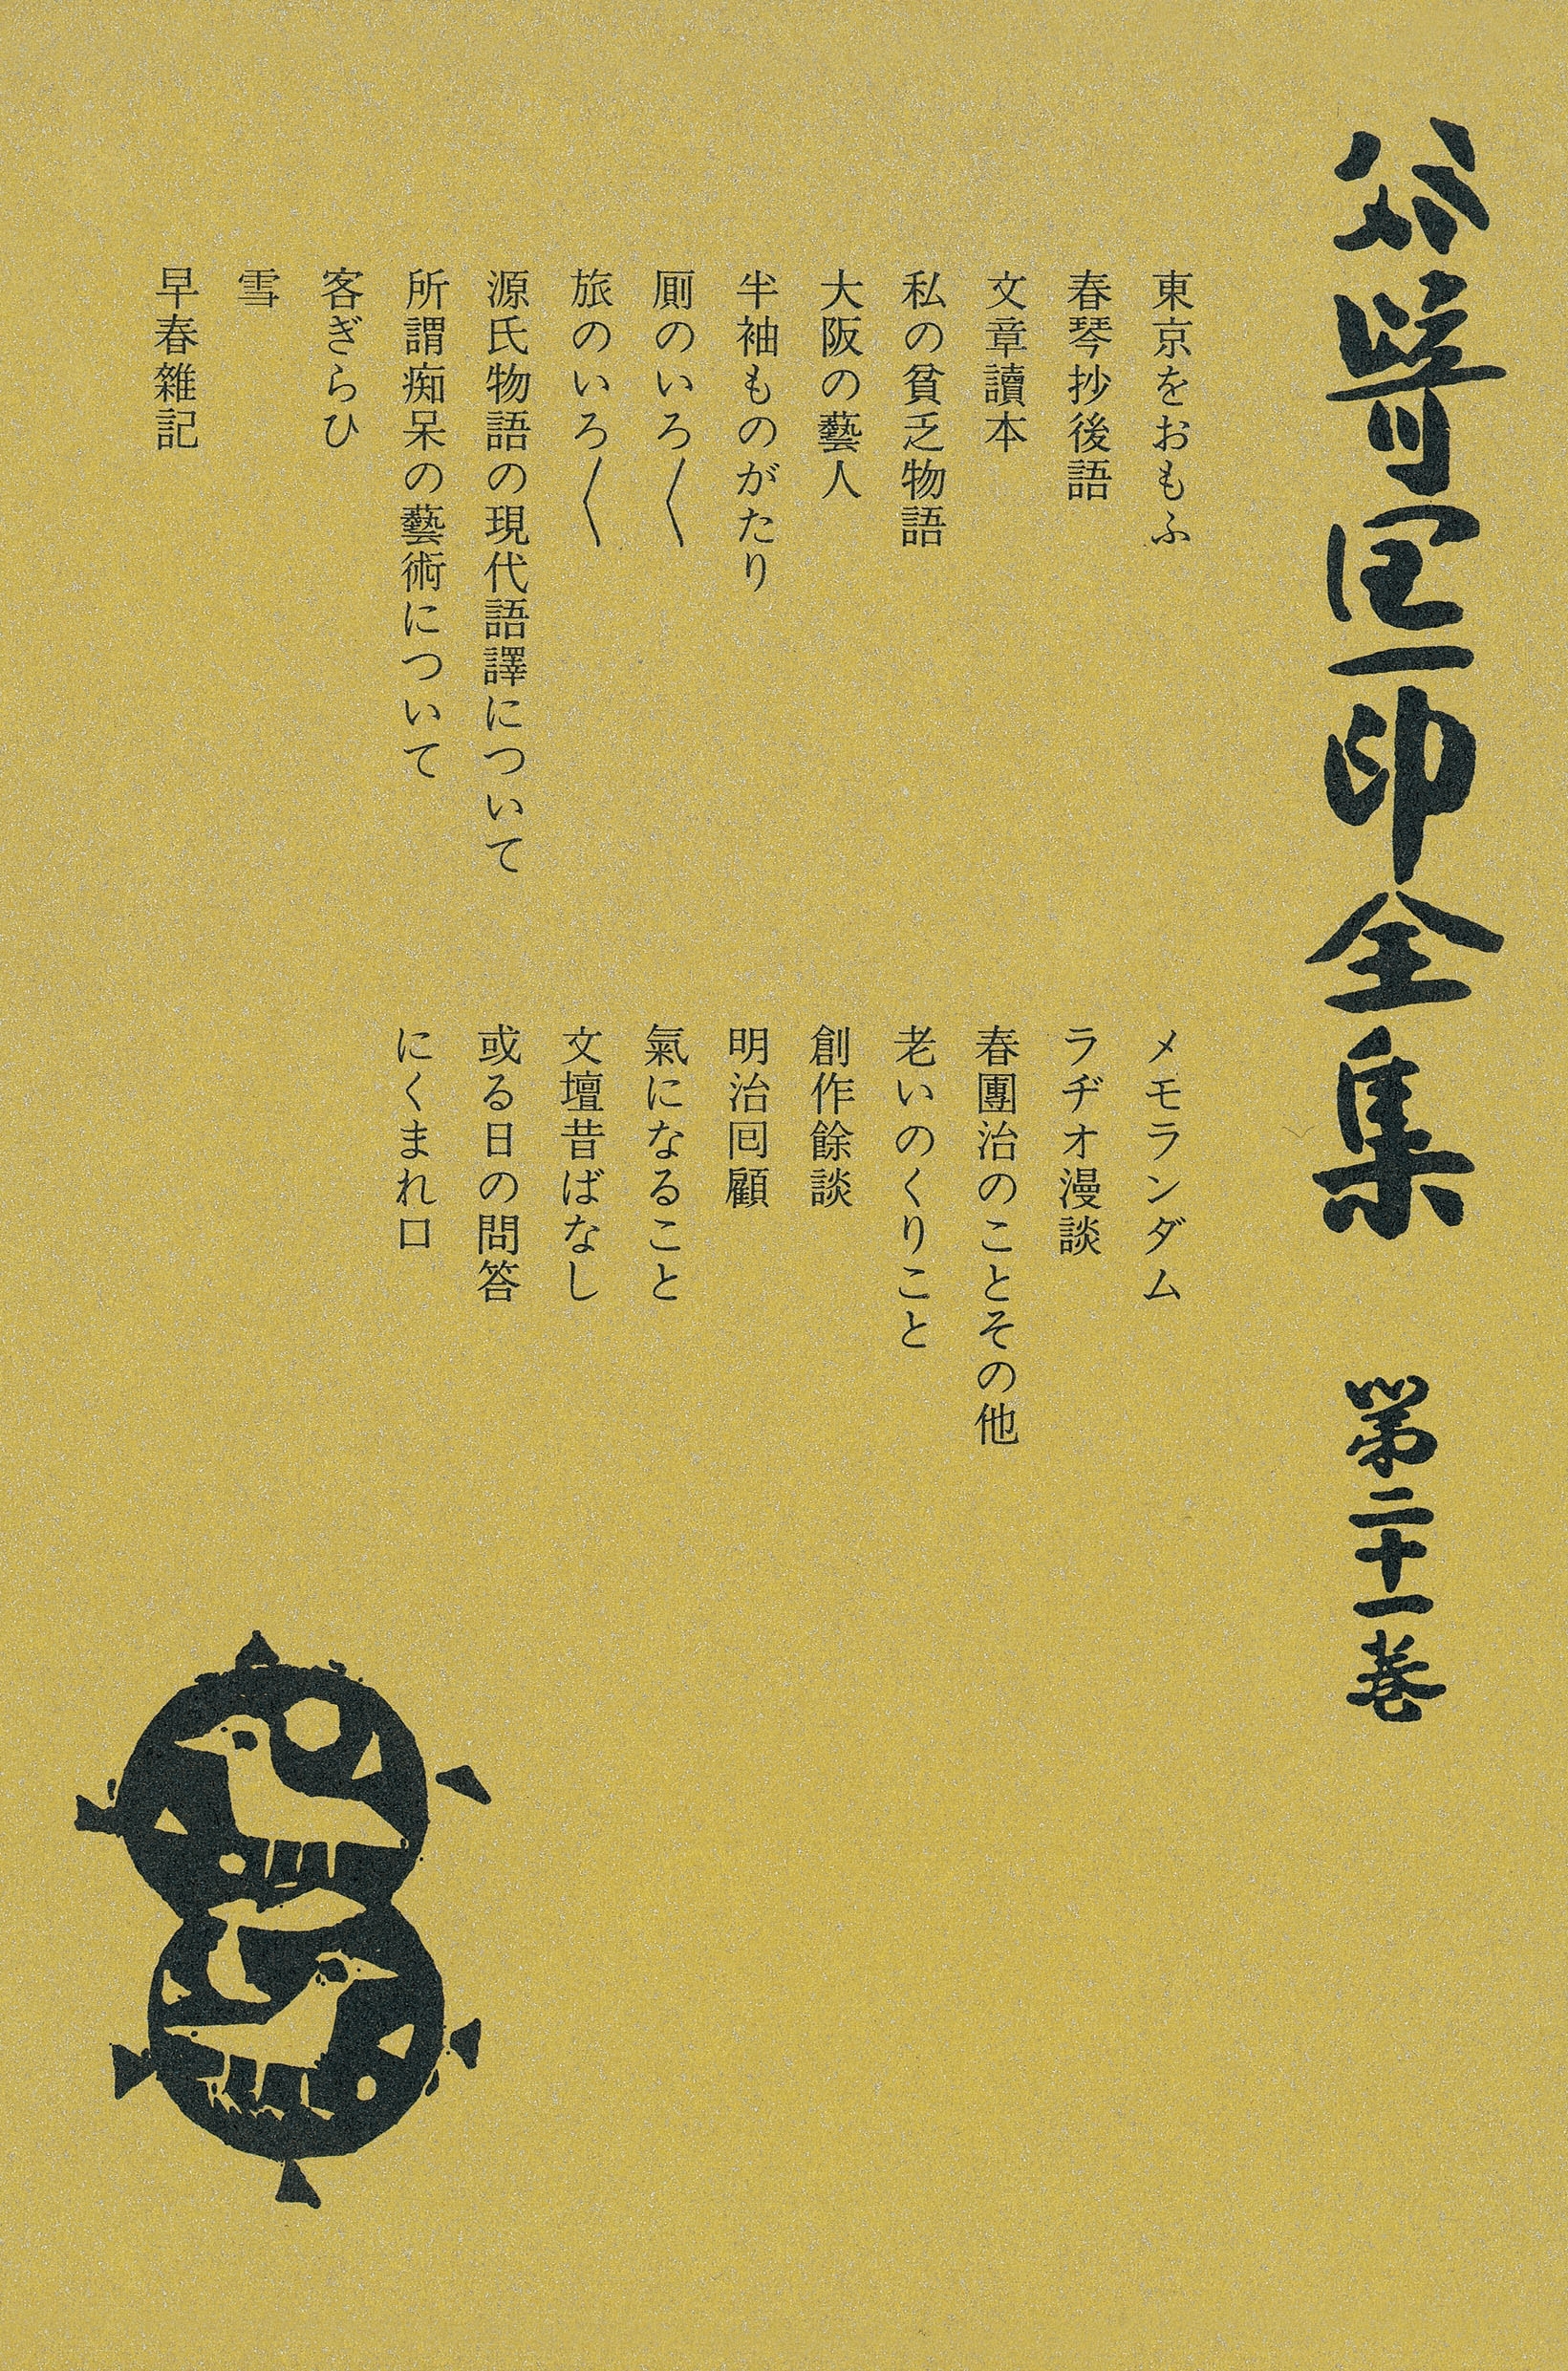 谷崎潤一郎全集 第二十一巻
東京をおもふ
春琴抄後語
文章讀本
私の貧乏物語
大阪の藝人
半袖ものがたり
厠のいろ〱
旅のいろ〱
源氏物語の現代語譯について
所謂痴呆の藝術について
客ぎらひ
雪
早春雜記
メモランダム
ラヂオ漫談
春團治のことその他
老いのくりこと
創作餘談
明治囘顧
氣になること
文壇昔ばなし
或る日の問答
にくまれ口